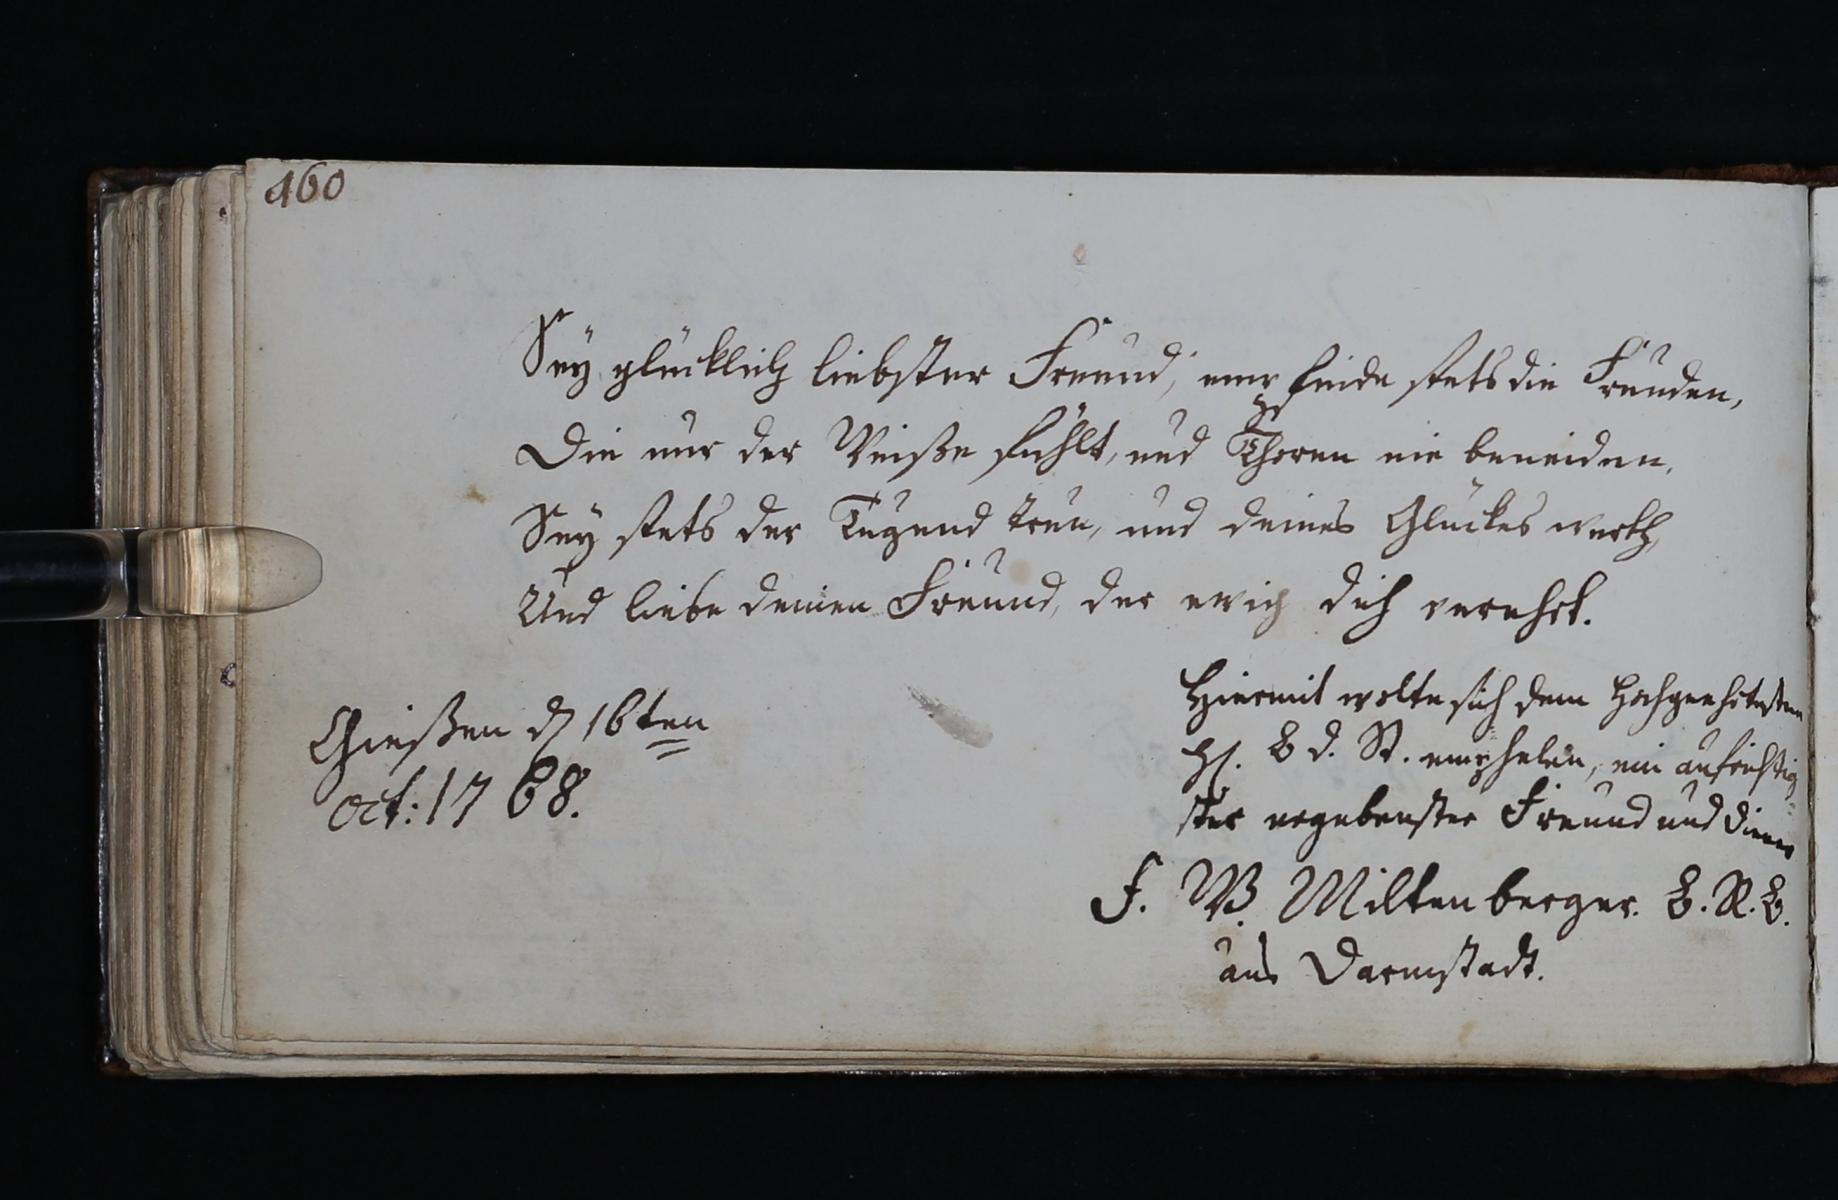 460
Sey glücklich liebster Freund, empfinde stets die Freuden,
Die nur der Weiße fühlt, und Thoren nie beneiden.
Sey stets der Tugend treu, und deines Glückes werth,
Und liebe deinen Freund, der ewig dich verehrt.
Gießen d 16ten
Oct: 1768.
Hiermit wolte sich dem Hochgeehrtesten
H. B d. St. empfehlen, ein aufrichtig
ster ergebenster Freund und Diener
F. W. Miltenberger. B. R. B.
aus Darmstadt.